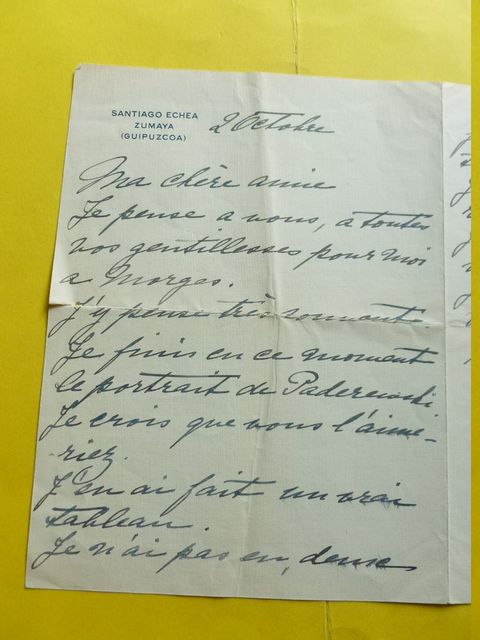 SANTIAGO ECHEA
ZUMAYA
(GUIPUZCOA)
2 Octobre
Ma chère amie
Je pense a vous, a toutes
vos gentillesses pour moi
a Morges.
J'y pense très souvent.
Je finis en ce moment
le portrait de Paderewski
Je crois que vous l'aime-
-riez.
J'en ai fait un vrai
tableau.
Je n'ai pas eu,